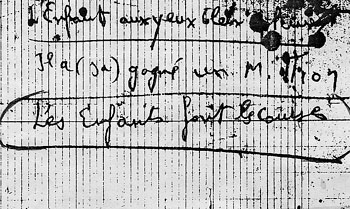 L'Enfant aux yeux clairs
Il a (sa) gagné un M.
Les Enfants font la course